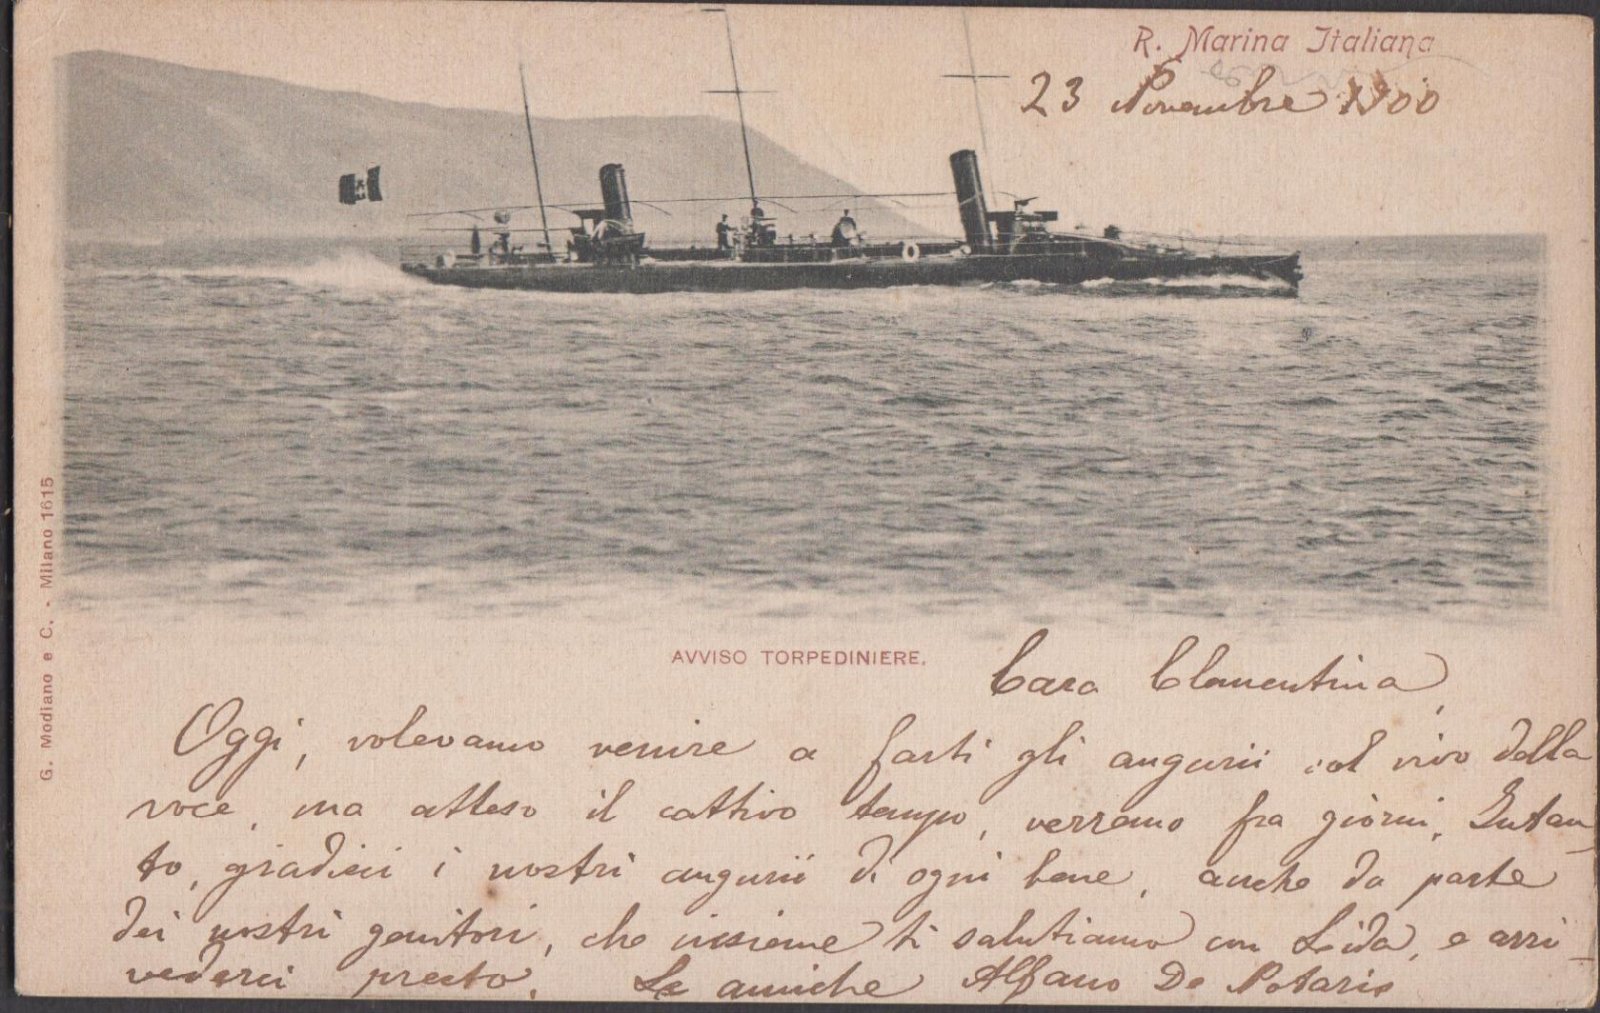 R. Marina Italiana
23 Novembre 1900
AVVISO TORPEDINIERE.
Cara Clementina,
Oggi, volevamo venire a farti gli augurii col vivo della
voce, ma atteso il cattivo tempo, verremo fra giorni. Intan-
to, gradisci i nostri augurii di ogni bene, anche da parte
dei nostri genitori, che insieme ti salutiamo con Leida, e arri-
vederci presto. Le amiche Alfano De
G. Modiano e C. - Milano 1615